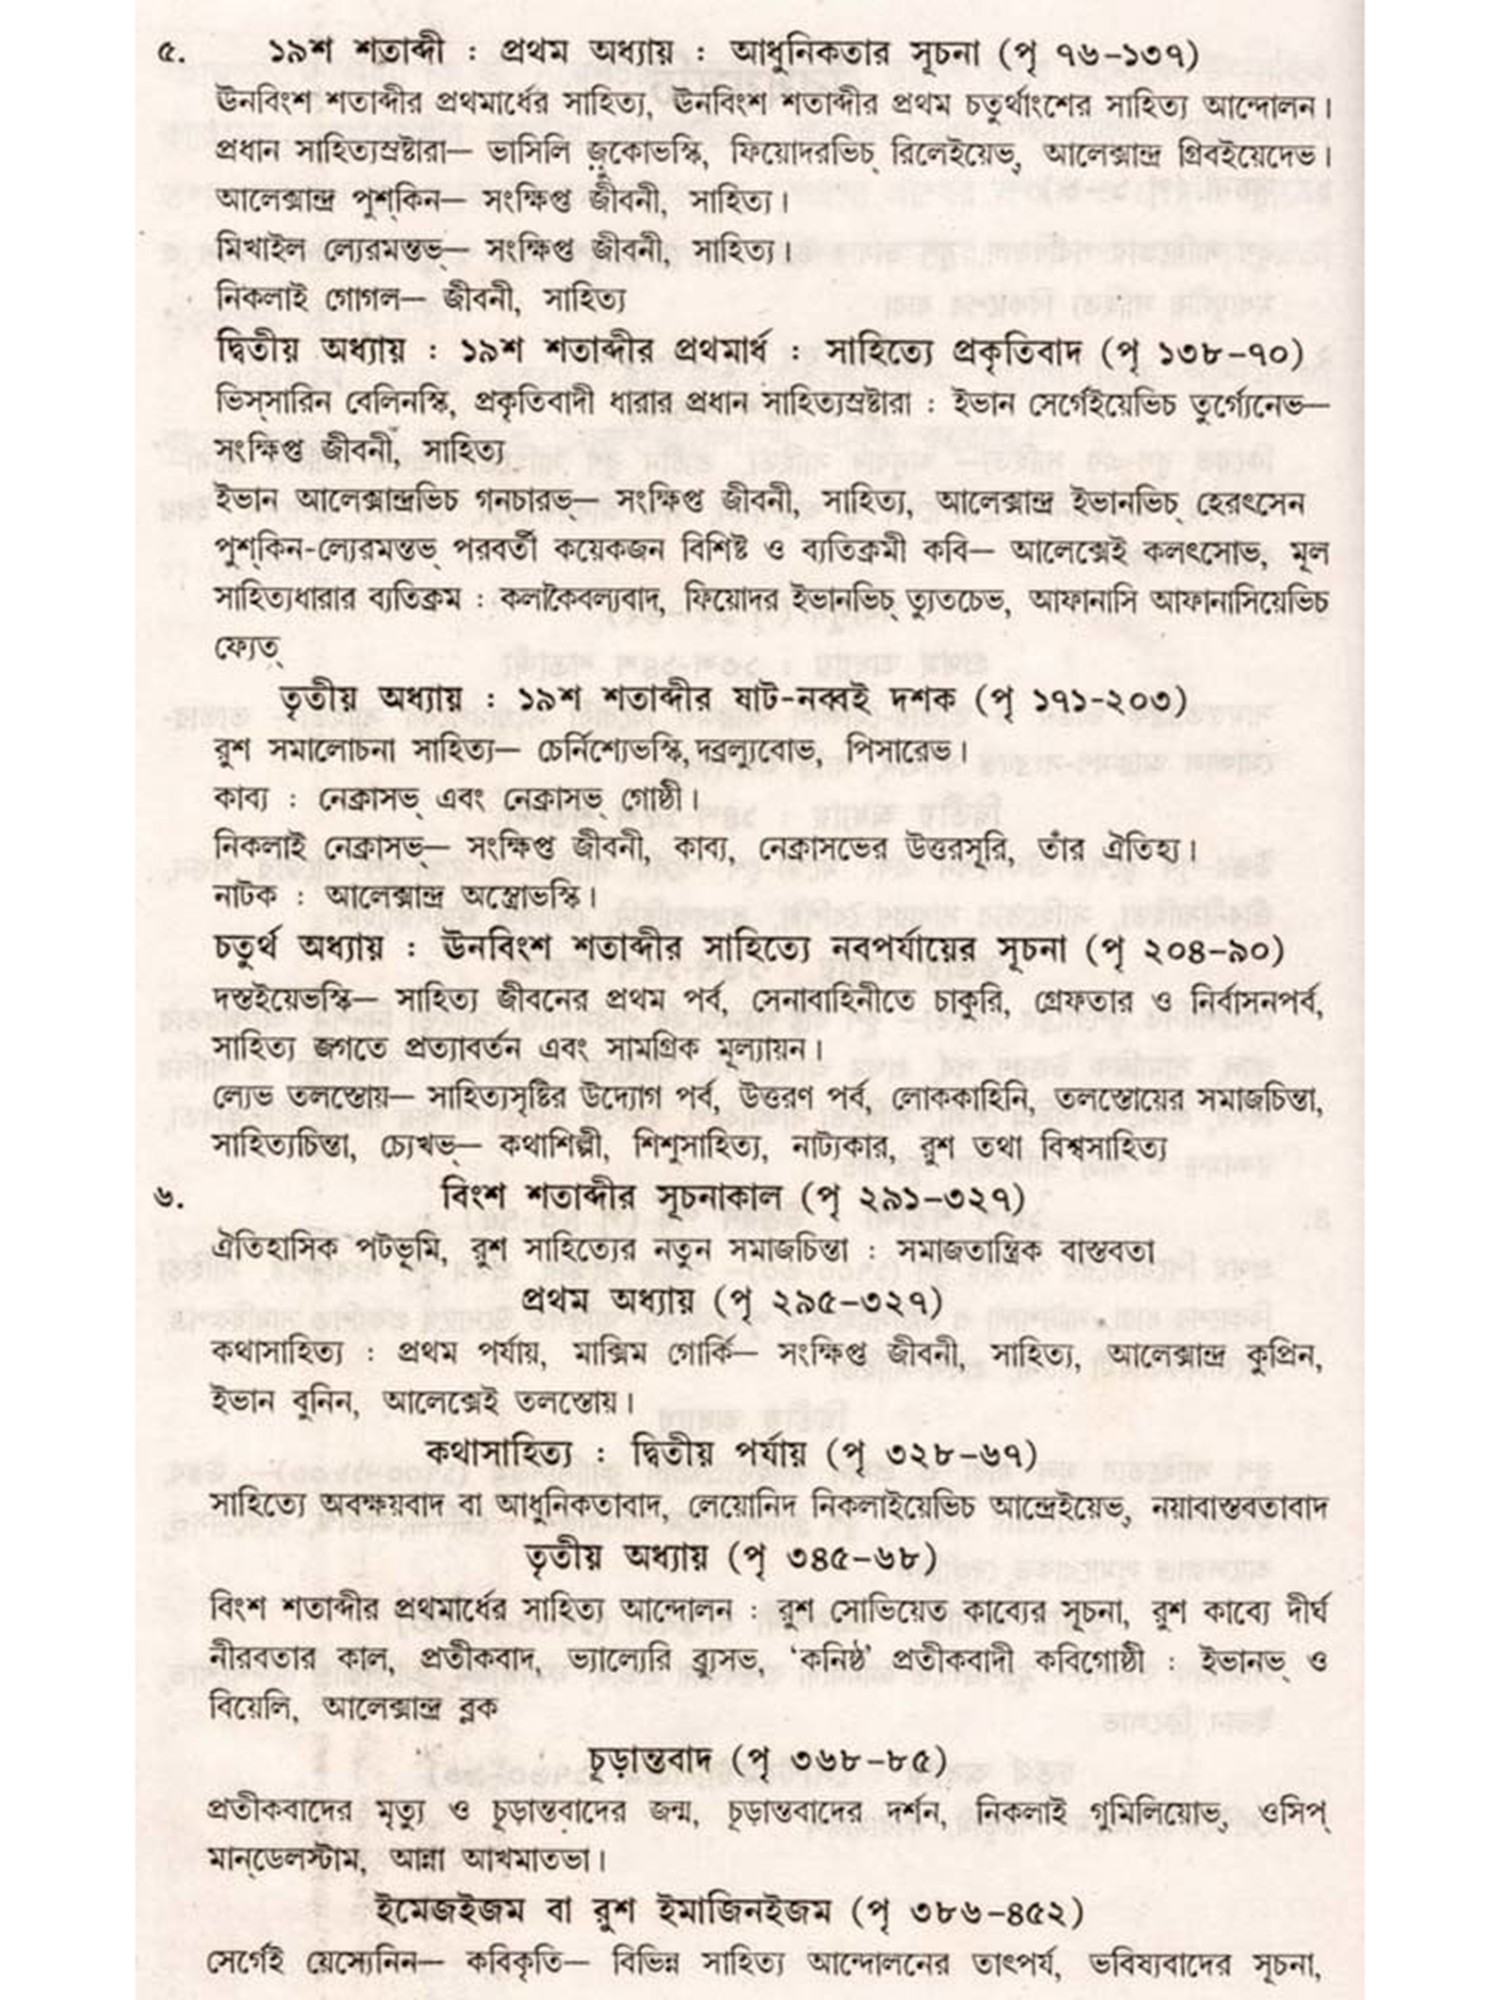 ৫. ১৯শ শতাব্দী : প্রথম অধ্যায় : আধুনিকতার সূচনা (পৃ ৭৬–১৩৭)
ঊনবিংশ শতাব্দীর প্রথমার্ধের সাহিত্য, ঊনবিংশ শতাব্দীর প্রথম চতুর্থাংশের সাহিত্য আন্দোলন।
প্রধান সাহিত্যস্রষ্টারা— ভাসিলি জুকোভস্কি, ফিয়োদরভিচ্ রিলেইয়েভ্, আলেক্সান্দ্র গ্রিবইয়েদেভ।
আলেক্সান্দ্র পুশ্‌কিন— সংক্ষিপ্ত জীবনী, সাহিত্য।
মিখাইল ল্যেরমন্তভ্— সংক্ষিপ্ত জীবনী, সাহিত্য।
নিকলাই গোগল— জীবনী, সাহিত্য
দ্বিতীয় অধ্যায় : ১৯শ শতাব্দীর প্রথমার্ধ : সাহিত্যে প্রকৃতিবাদ (পৃ ১৩৮–৭০)
ভিস্‌সারিন বেলিনস্কি, প্রকৃতিবাদী ধারার প্রধান সাহিত্যস্রষ্টারা : ইভান সের্গেইয়েভিচ তুর্গ্যেনেভ—
সংক্ষিপ্ত জীবনী, সাহিত্য
ইভান আলেক্সান্দ্রভিচ গনচারভ্— সংক্ষিপ্ত জীবনী, সাহিত্য, আলেক্সান্দ্র ইভানভিচ্ হেরৎসেন
পুশ্‌কিন-ল্যেরমন্তভ্ পরবর্তী কয়েকজন বিশিষ্ট ও ব্যতিক্রমী কবি— আলেক্সেই কলৎসোভ, মূল
সাহিত্যধারার ব্যতিক্রম : কলাকৈবল্যবাদ, ফিয়োদর ইভানভিচ্ ত্যুতচেভ, আফানাসি আফানাসিয়েভিচ
ফ্যেত্
তৃতীয় অধ্যায় : ১৯শ শতাব্দীর ষাট-নব্বই দশক (পৃ ১৭১-২০৩)
রুশ সমালোচনা সাহিত্য— চের্নিশ্যেভস্কি, দব্রল্যুবোভ, পিসারেভ।
কাব্য : নেক্রাসভ্ এবং নেক্রাসভ্ গোষ্ঠী।
নিকলাই নেক্রাসভ্— সংক্ষিপ্ত জীবনী, কাব্য, নেক্রাসভের উত্তরসূরি, তাঁর ঐতিহ্য।
নাটক : আলেক্সান্দ্র অস্ত্রোভস্কি।
চতুর্থ অধ্যায় : ঊনবিংশ শতাব্দীর সাহিত্যে নবপর্যায়ের সূচনা (পৃ ২০৪–৯০)
দস্তইয়েভস্কি— সাহিত্য জীবনের প্রথম পর্ব, সেনাবাহিনীতে চাকুরি, গ্রেফতার ও নির্বাসনপর্ব,
সাহিত্য জগতে প্রত্যাবর্তন এবং সামগ্রিক মূল্যায়ন।
ল্যেভ তলস্তোয়— সাহিত্যসৃষ্টির উদ্যোগ পর্ব, উত্তরণ পর্ব, লোককাহিনি, তলস্তোয়ের সমাজচিন্তা,
সাহিত্যচিন্তা, চ্যেখভ্— কথাশিল্পী, শিশুসাহিত্য, নাট্যকার, রুশ তথা বিশ্বসাহিত্য
৬. বিংশ শতাব্দীর সূচনাকাল (পৃ ২৯১–৩২৭)
ঐতিহাসিক পটভূমি, রুশ সাহিত্যের নতুন সমাজচিন্তা : সমাজতান্ত্রিক বাস্তবতা
প্রথম অধ্যায় (পৃ ২৯৫–৩২৭)
কথাসাহিত্য : প্রথম পর্যায়, মাক্সিম গোর্কি— সংক্ষিপ্ত জীবনী, সাহিত্য, আলেক্সান্দ্র কুপ্রিন,
ইভান বুনিন, আলেক্সেই তলস্তোয়।
কথাসাহিত্য : দ্বিতীয় পর্যায় (পৃ ৩২৮–৬৭)
সাহিত্যে অবক্ষয়বাদ বা আধুনিকতাবাদ, লেয়োনিদ নিকলাইয়েভিচ আন্দ্রেইয়েভ্, নয়াবাস্তবতাবাদ
তৃতীয় অধ্যায় (পৃ ৩৪৫–৬৮)
বিংশ শতাব্দীর প্রথমার্ধের সাহিত্য আন্দোলন : রুশ সোভিয়েত কাব্যের সূচনা, রুশ কাব্যে দীর্ঘ
নীরবতার কাল, প্রতীকবাদ, ভ্যাল্যেরি ব্র্যুসভ, ‘কনিষ্ঠ’ প্রতীকবাদী কবিগোষ্ঠী : ইভানভ্ ও
বিয়েলি, আলেক্সান্দ্র ব্লক
চূড়ান্তবাদ (পৃ ৩৬৮–৮৫)
প্রতীকবাদের মৃত্যু ও চূড়ান্তবাদের জন্ম, চূড়ান্তবাদের দর্শন, নিকলাই গুমিলিয়োভ্, ওসিপ্
মান্‌ডেলস্টাম, আন্না আখমাতভা।
ইমেজইজম বা রুশ ইমাজিনইজম (পৃ ৩৮৬–৪৫২)
সের্গেই য়েস্যেনিন— কবিকৃতি— বিভিন্ন সাহিত্য আন্দোলনের তাৎপর্য, ভবিষ্যবাদের সূচনা,